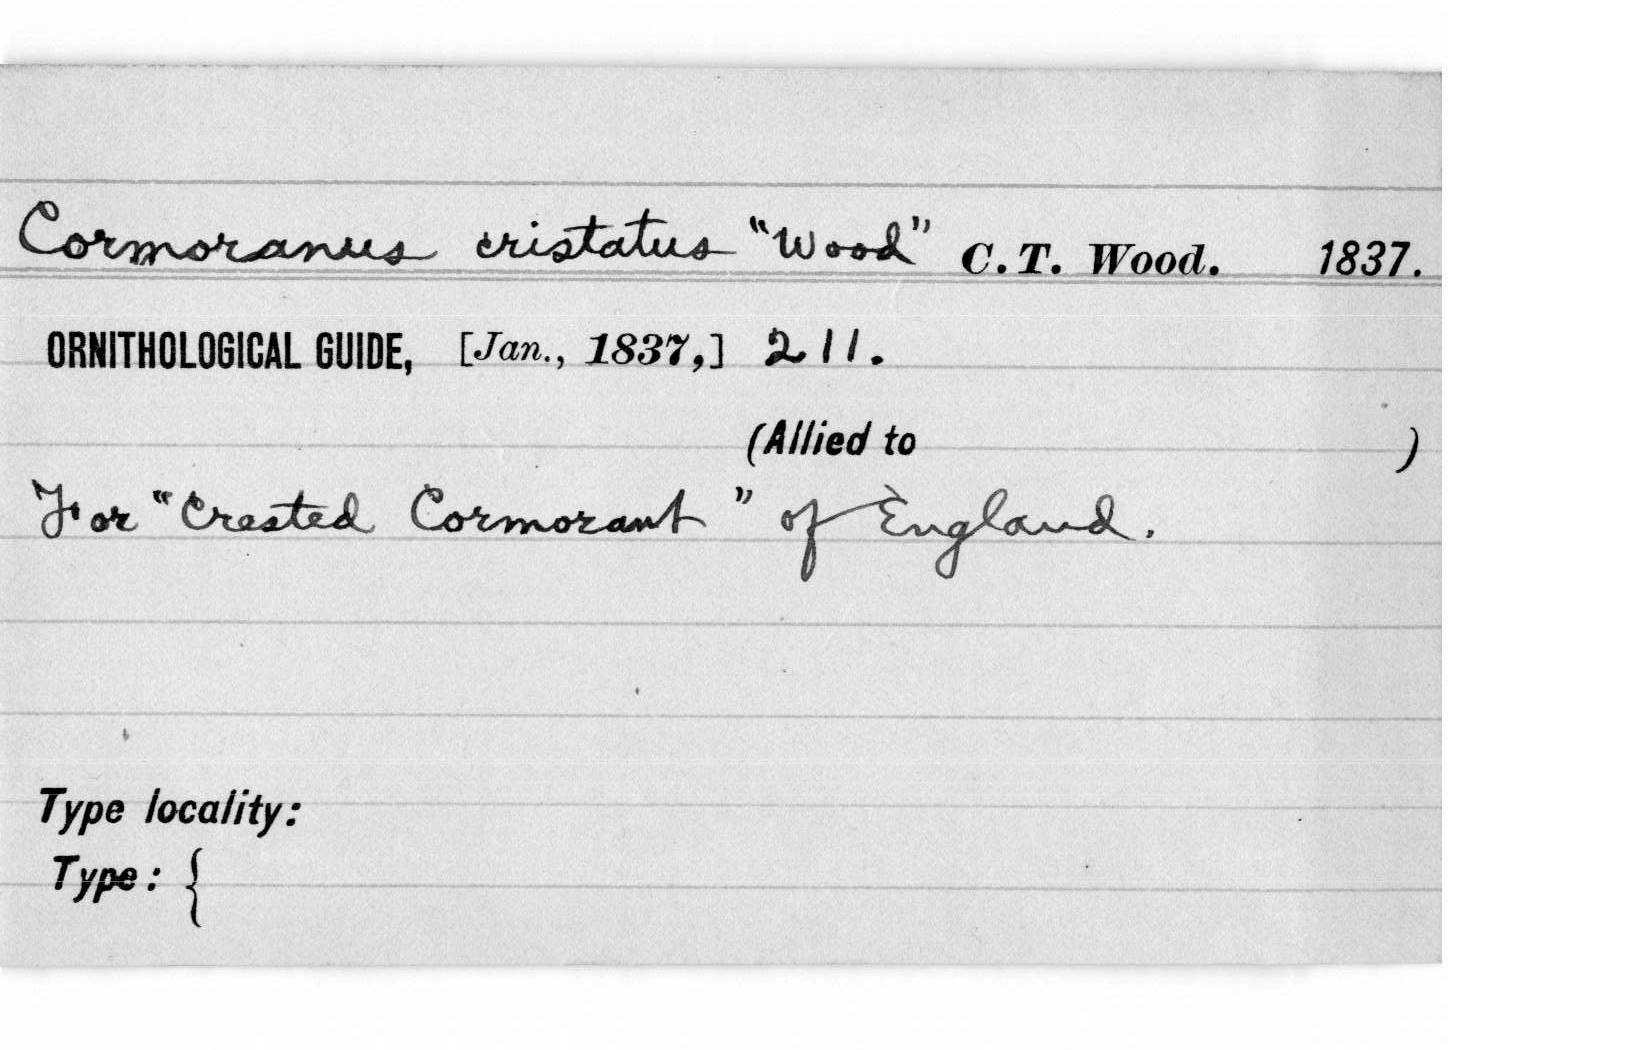 Cormoranus cristatus "Wood" C. T. Wood. 1837.
ORNITHOLOGICAL GUIDE, [Jan., 1837,] 211.
(Allied to )
For "Crested Cormorant" of England.
Type locality:
Type: {